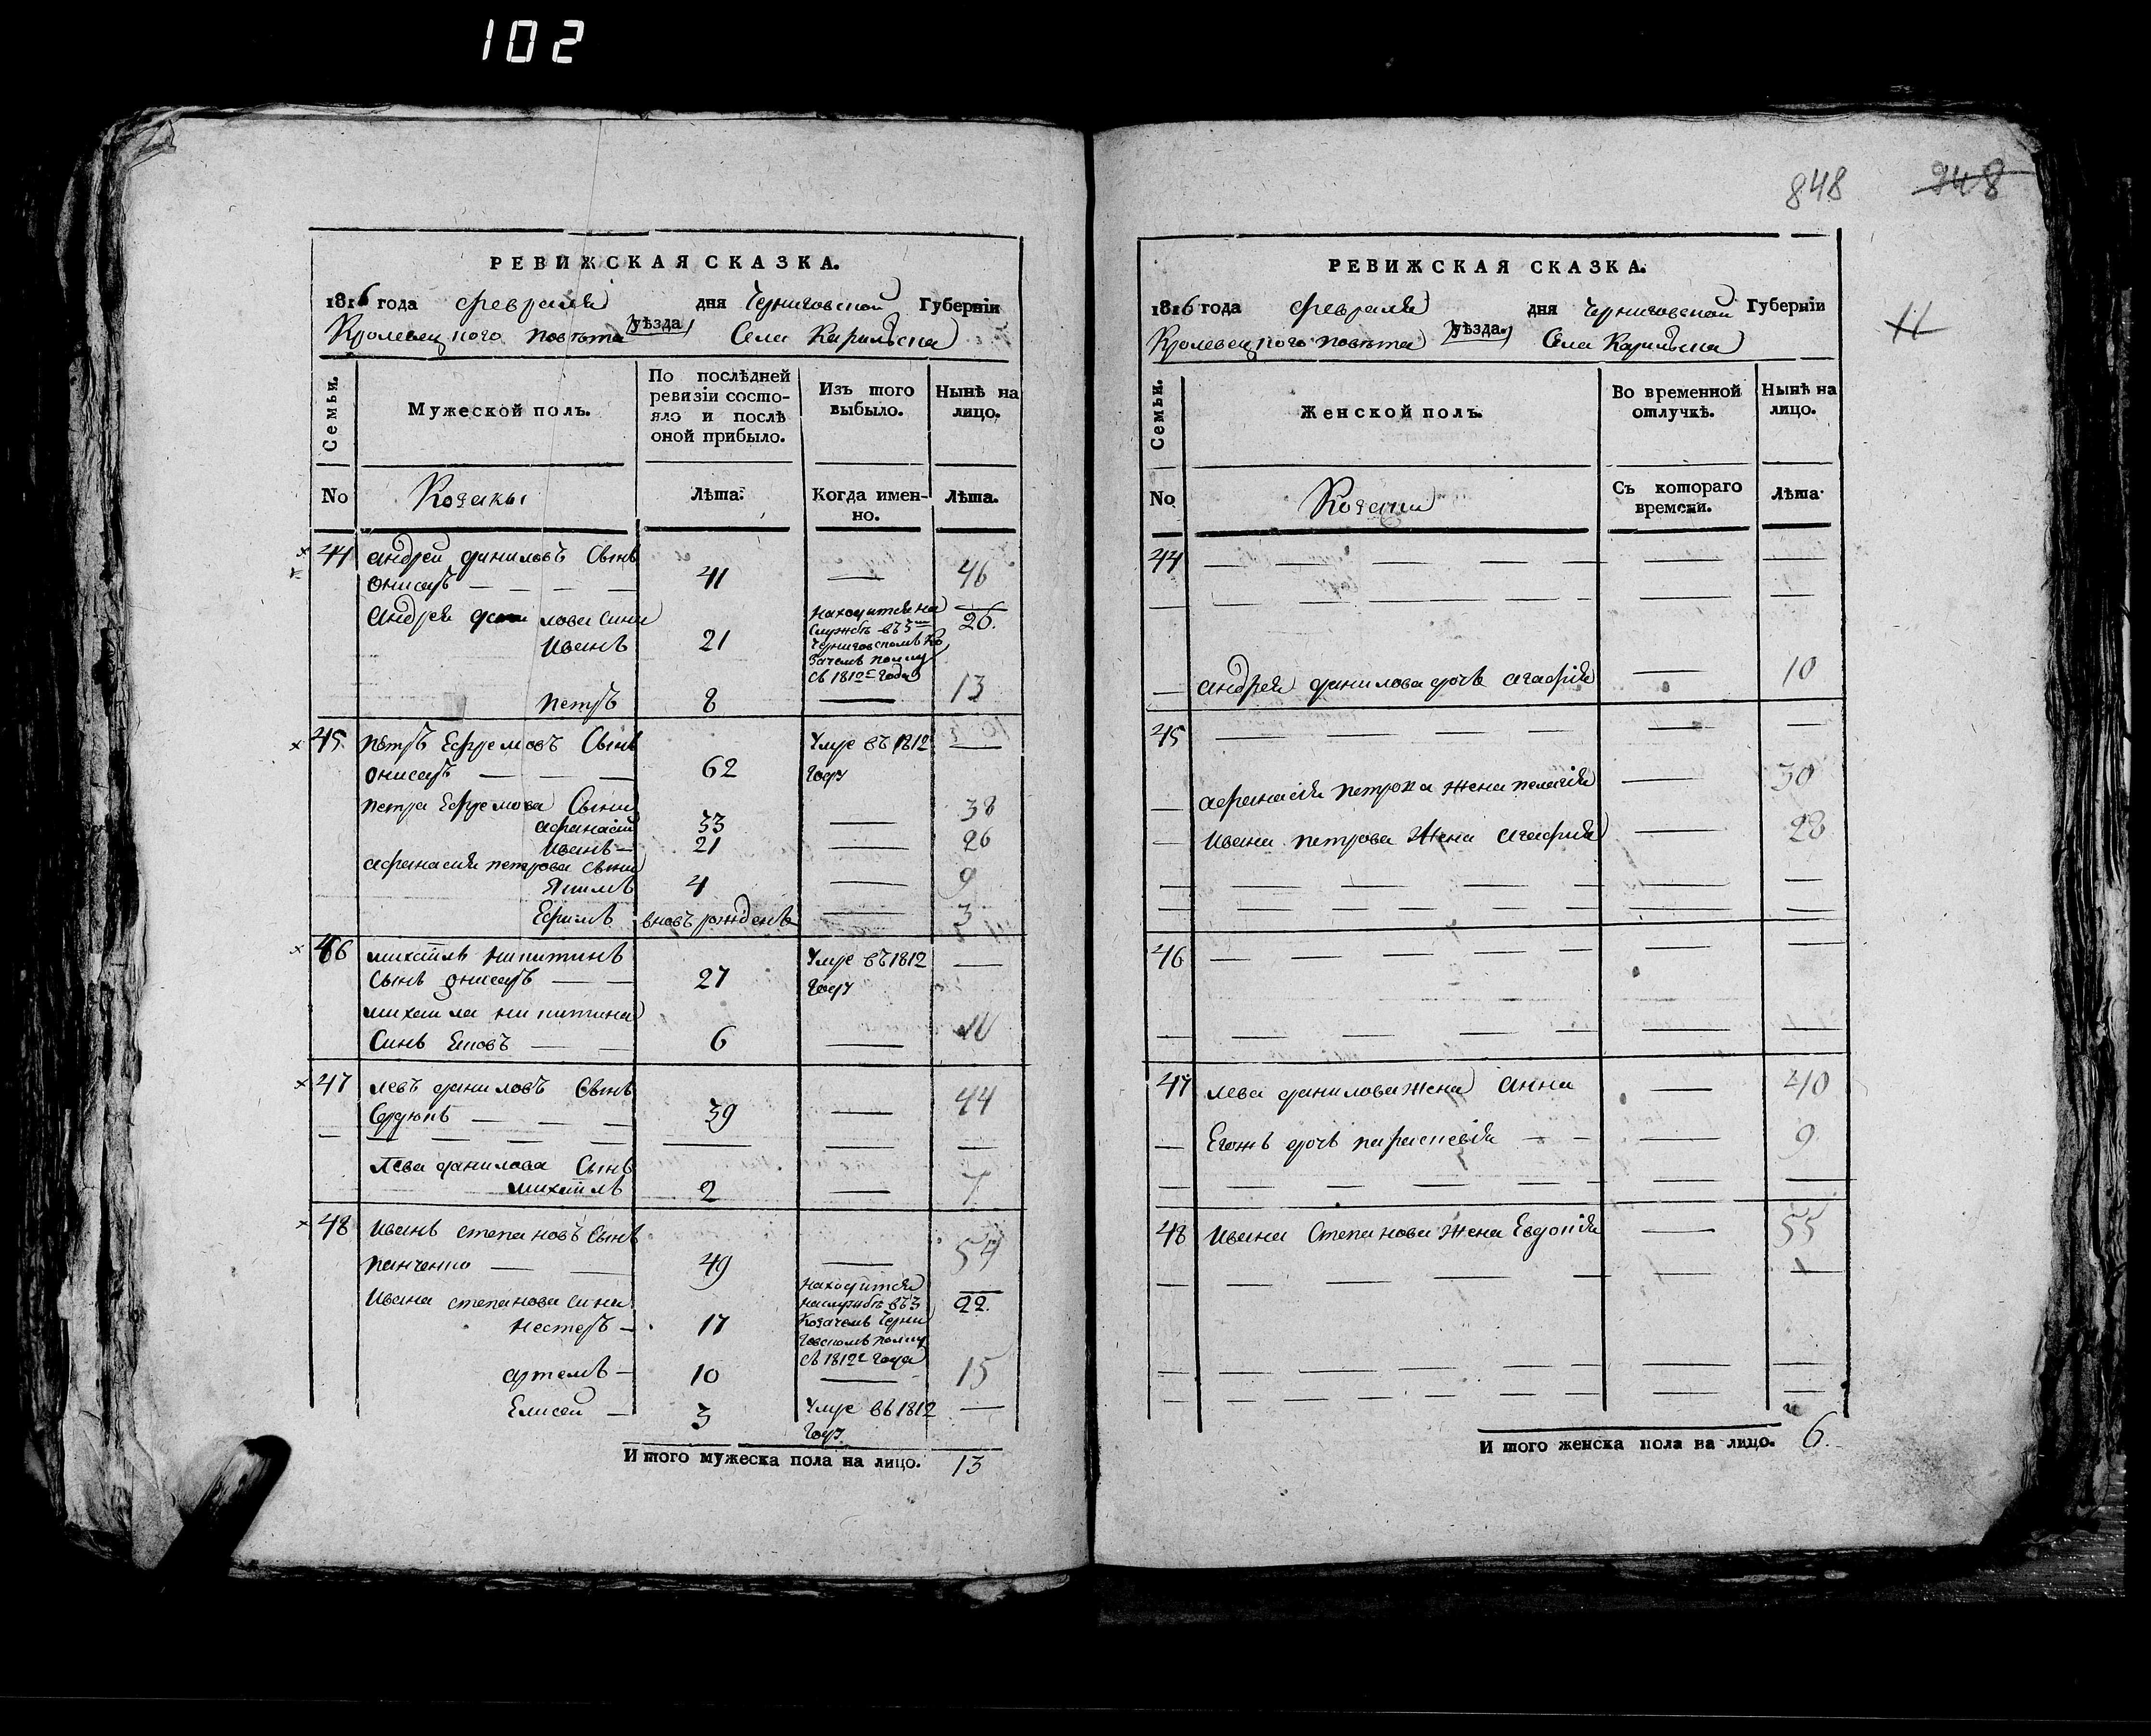 102
РЕВИЖСКАЯ СКАЗКА.
1816 года февраля дня Черниговской Губерніи
Кролевецкого повѣта уѣзда Села Карильска
Семьи.
Мужеской полъ.
По послѣдней
ревизіи состо-
яло и послѣ
оной прибыло.
Изъ того
выбыло.
Нынѣ на
лицо.
No
Козаки
Лѣта.
Когда имен-
но.
Лѣта.
44 андрей даниловъ Сынъ
онисар 41 — 46
андрея данилова сини
иванъ 21 26.
находится на
службѣ въ 3
Черниговскомъ Ко
зачемъ полку
съ 1812 года
петръ 8 — 13
45 петръ Ефремовъ Сынъ
онисар 62 Умре въ 1812 —
году
петра Ефремова Сыни
афанасій 33 — 38
иванъ 21 — 26
афанасия петрова сыни
Якимъ 4 — 9
Ефимъ вновъ рожденъ — 3
46 михаилъ никитинъ
сынъ онисар 27 Умре въ 1812 —
году
михаила никитина
Синъ 6 —
47 левъ даниловъ Сынъ
Сердюкъ 39 — 44
лева данилова Сынъ
михаилъ 2 — 7
48 иванъ степановъ Сынъ
панченко 49 — 54
ивана степанова сини
нестеръ 17 22.
находится
на службѣ въ 3
Козачемъ Черни
говскомъ полку
съ 1812 года
артемъ 10 — 15
Елисей 3 Умре въ 1812 —
году.
И того мужеска пола на лицо. 13
848 948
РЕВИЖСКАЯ СКАЗКА.
1816 года февраля дня Черниговской Губерніи
Кролевецкого повѣта уѣзда. Села Карильска
11
Семьи.
Женской полъ.
Во временной
отлучкѣ.
Нынѣ на
лицо.
No
Козачки
Съ котораго
времени.
Лѣта.
44
андрея данилова дочь агафия — 10
45
афанасия петрова жена пелагия — 30
ивана петрова Жена агафия — 23
46
47 лева данилова жена анна — 40
Егожъ дочь параскевія — 9
48 ивана Степанова жена Евдокія — 55
И того женска пола на лицо. 6.